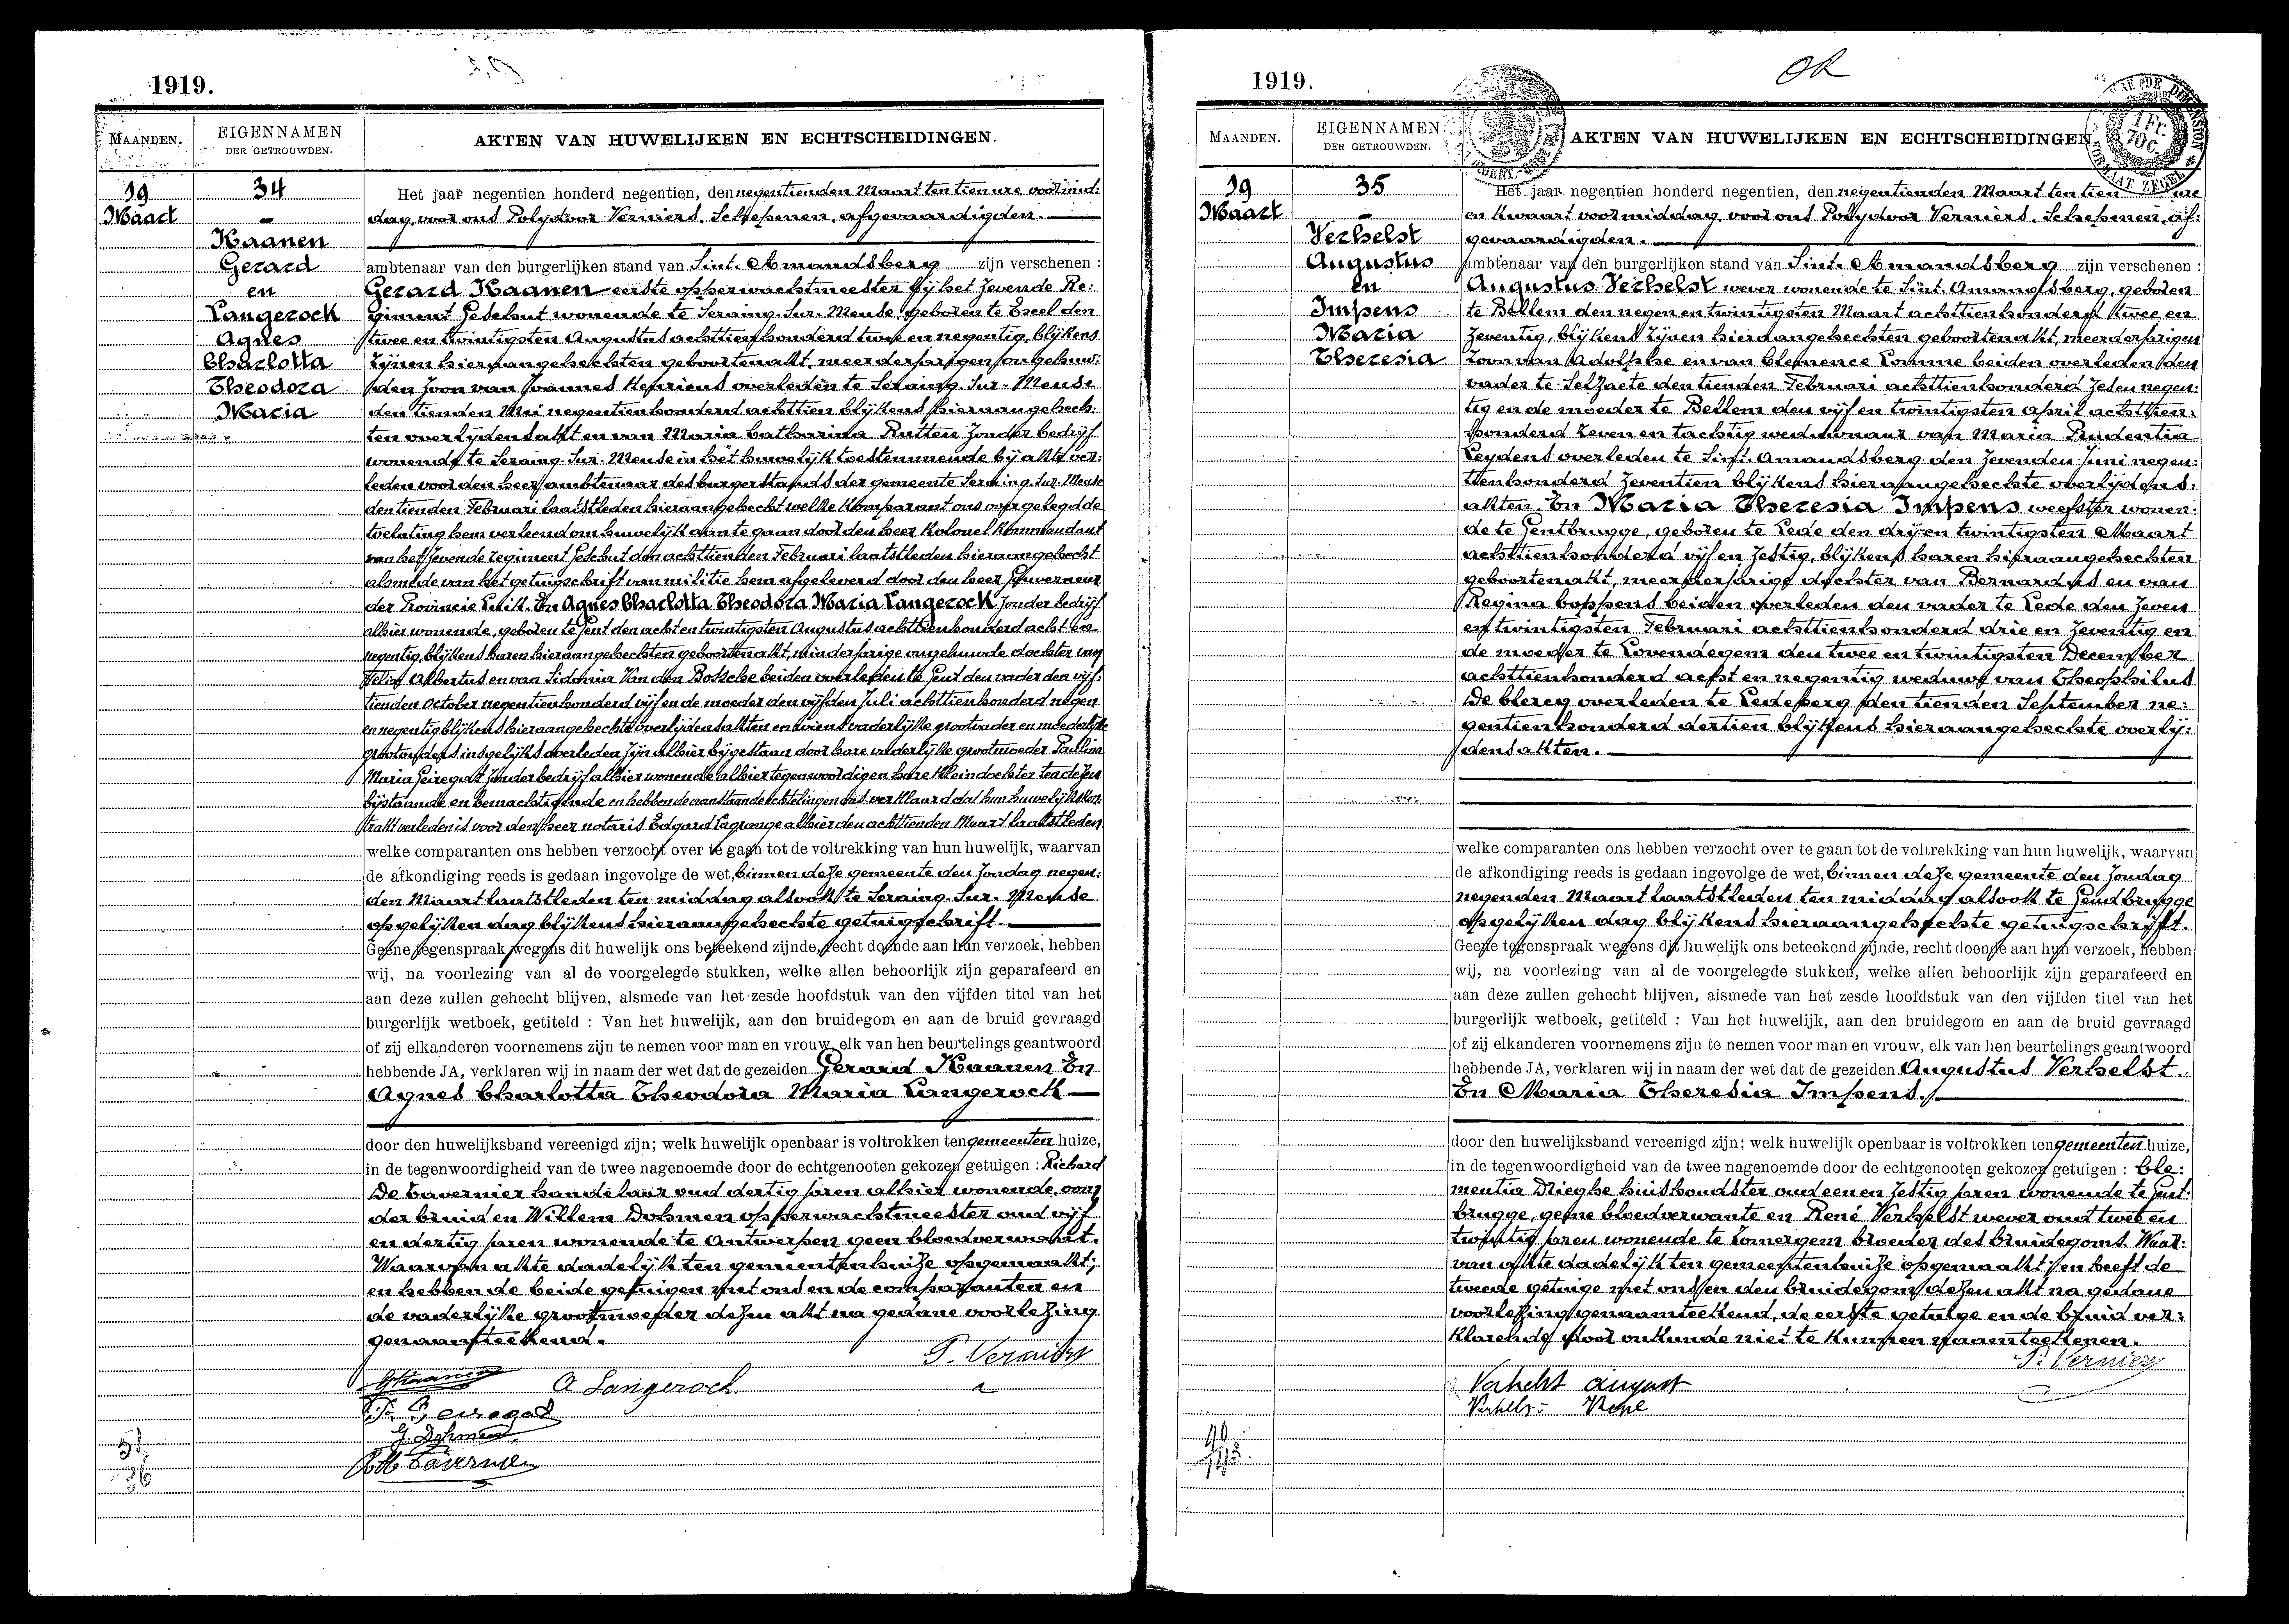 1919.
MAANDEN.
EIGENNAMEN
DER GETROUWDEN.
AKTEN VAN HUWELIJKEN EN ECHTSCHEIDINGEN.
19
Maart
34
Kaanen
Gerard
en
Langerock
Agnes
Charlotta
Theodora
Maria
Het jaar negentien honderd negentien, den negentienden Maart ten tien ure voormid:
dag, voor ons Polydoor Verniers, Schepenen, afgevaardigden.
ambtenaar van den burgerlijken stand van Sint. Amandsberg zijn verschenen :
Gerard Kaanen eerste opperwachtmeester bij het Zevende Re:
giment Geschut wonende te Seraing-Sur-Meuse, geboren te Exel den
twee en twintigsten Augustus achttienhonderd twee en negentig, blijkens
zijnen hieraangehechten geboorteakt, meerderjarigen ongehuw:
den zoon van Joannes overleden te Seraing-Sur-Meuse
den tienden Mei negentienhonderd achttien blijkens hieraangehech:
ten overlijdensakt en van Maria Catharina Rutten zonder bedrijf
wonende te Seraing-Sur-Meuse in het huwelijk toestemmende bij akte ver:
leden voor den heer ambtenaar des burgerstands der gemeente Seraing-Sur-Meuse
den tienden Februari laatstleden hieraangehecht welke komparant ons overgelegd de
toelating hem verleend om huwelijk aan te gaan door den heer Kolonel Kommandant
van het Zevende regiment Geschut den achttienden Februari laatstleden hieraangehecht
alsmede van het getuigschrift van militie hem afgeleverd door den heer Gouverneur
der Provincie Luik. En Agnes Charlotta Theodora Maria Langerock zonder bedrijf
alhier wonende, geboren te Gent den acht en twintigsten Augustus achttienhonderd acht en
negentig, blijkens haren hieraangehechten geboorteakt, minderjarige ongehuwde dochter van
Felix Albertus en van Sidonia Van den Bossche beiden overleden te Gent den vader den vijf:
tienden October negentienhonderd vijf en de moeder den vijfden Juli achttienhonderd negen
en negentig blijkens hieraangehechte overlijdensakten en wiens vaderlijke grootvader en moederlijke
grootouders insgelijks overleden zijn alhier bijgestaan door hare vaderlijke grootmoeder Paulina
Maria Geiregat zonder bedrijf alhier wonende alhier tegenwoordig en hare kleindochter ten dezen
bijstaande en bemachtigende en hebben de aanstaande echtelingen ons verklaard dat hun huwelijkskon:
trakt verleden is voor den heer notaris Edgard Lagrange alhier den achttienden Maart laatstleden
welke comparanten ons hebben verzocht over te gaan tot de voltrekking van hun huwelijk, waarvan
de afkondiging reeds is gedaan ingevolge de wet, binnen deze gemeente den Zondag negen:
den Maart laatstleden ten middag alsook te Seraing-Sur-Meuse
op gelijken dag blijkens hieraangehechte getuigschrift.
Geene tegenspraak wegens dit huwelijk ons beteekend zijnde, recht doende aan hun verzoek, hebben
wij, na voorlezing van al de voorgelegde stukken, welke allen behoorlijk zijn geparafeerd en
aan deze zullen gehecht blijven, alsmede van het zesde hoofdstuk van den vijfden titel van het
burgerlijk wetboek, getiteld : Van het huwelijk, aan den bruidegom en aan de bruid gevraagd
of zij elkanderen voornemens zijn te nemen voor man en vrouw, elk van hen beurtelings geantwoord
hebbende JA, verklaren wij in naam der wet dat de gezeiden Gerard Kaanen En
Agnes Charlotta Theodora Maria Langerock
door den huwelijksband vereenigd zijn; welk huwelijk openbaar is voltrokken ten gemeenten huize,
in de tegenwoordigheid van de twee nagenoemde door de echtgenooten gekozen getuigen : Richard
De Tavernier handelaar oud dertig jaren alhier wonende, oom
der bruid en Willem Dohmen opperwachtmeester oud vijf
en dertig jaren wonende te Antwerpen geen bloedverwant.
Waarvan akte dadelijk ten gemeentenhuize opgemaakt;
en hebben de beide getuigen met ons en de comparanten en
de vaderlijke grootmoeder dezen akt na gedane voorlezing
genaamteekend.
P. Verniers
GKaanen
A Langerock
Geiregat
G. Dohmen
De Tavernier
36
1919.
OK
MAANDEN.
EIGENNAMEN
DER GETROUWDEN.
AKTEN VAN HUWELIJKEN EN ECHTSCHEIDINGEN
19
Maart
35
Verhelst
Augustus
en
Impens
Maria
Theresia
Het jaar negentien honderd negentien, den negentienden Maart ten tien ure
en kwaart voormiddag, voor ons Polydoor Verniers, Schepenen, af:
gevaardigden.
ambtenaar van den burgerlijken stand van Sint. Amandsberg zijn verschenen :
Augustus Verhelst wever wonende te Sint. Amandsberg, geboren
te Bellem den negen en twintigsten Maart achttienhonderd twee en
zeventig, blijkens zijnen hieraangehechten geboorteakt, meerderjarigen
zoon van Adolphe en van Clemence Lomme beiden overleden den
vader te Selzaete den tienden Februari achttienhonderd zes en negen:
tig en de moeder te Bellem den vijf en twintigsten April achttien:
honderd zeven en tachtig weduwnaar van Maria Prudentia
Leydens overleden te Sint. Amandsberg den zevenden Juni negen:
tienhonderd zeventien blijkens hieraangehechte overlijdens:
akten. En Maria Theresia Impens weefster wonen:
de te Gentbrugge, geboren te Lede den drij en twintigsten Maart
achttienhonderd vijf en zestig, blijkens haren hieraangehechten
geboorteakt, meerderjarige dochter van Bernardus en van
Regina Coppens beiden overleden den vader te Lede den zeven
en twintigsten Februari achttienhonderd drie en zeventig en
de moeder te Lovendegem den twee en twintigsten December
achttienhonderd acht en negentig weduwe van Theophilus
De Clercq overleden te Ledeberg den tienden September ne:
gentienhonderd dertien blijkens hieraangehechte overlij:
densakten.
welke comparanten ons hebben verzocht over te gaan tot de voltrekking van hun huwelijk, waarvan
de afkondiging reeds is gedaan ingevolge de wet, binnen deze gemeente den Zondag
negenden Maart laatstleden ten middag alsook te Gendbrugge
op gelijken dag blijkens hieraangehechte getuigschrift.
Geene tegenspraak wegens dit huwelijk ons beteekend zijnde, recht doende aan hun verzoek, hebben
wij, na voorlezing van al de voorgelegde stukken, welke allen behoorlijk zijn geparafeerd en
aan deze zullen gehecht blijven, alsmede van het zesde hoofdstuk van den vijfden titel van het
burgerlijk wetboek, getiteld : Van het huwelijk, aan den bruidegom en aan de bruid gevraagd
of zij elkanderen voornemens zijn te nemen voor man en vrouw, elk van hen beurtelings geantwoord
hebbende JA, verklaren wij in naam der wet dat de gezeiden Augustus Verhelst.
En Maria Theresia Impens.
door den huwelijksband vereenigd zijn; welk huwelijk openbaar is voltrokken ten gemeenten huize,
in de tegenwoordigheid van de twee nagenoemde door de echtgenooten gekozen getuigen : Cle:
mentia Drieghe huishoudster oud een en zestig jaren wonende te Gent:
brugge, geene bloedverwante en René Verhelst wever oud twee en
twintig jaren wonende te Zomergem broeder des bruidegoms. Waar:
van akte dadelijk ten gemeentenhuize opgemaakt en heeft de
tweede getuige met ons en den bruidegom dezen akt na gedane
voorlezing genaamteekend, de eerste getuige en de bruid ver:
klarende door onkunde niet te kunnen naamteekenen.
P. Verniers
Verhelst august
Verhelst René